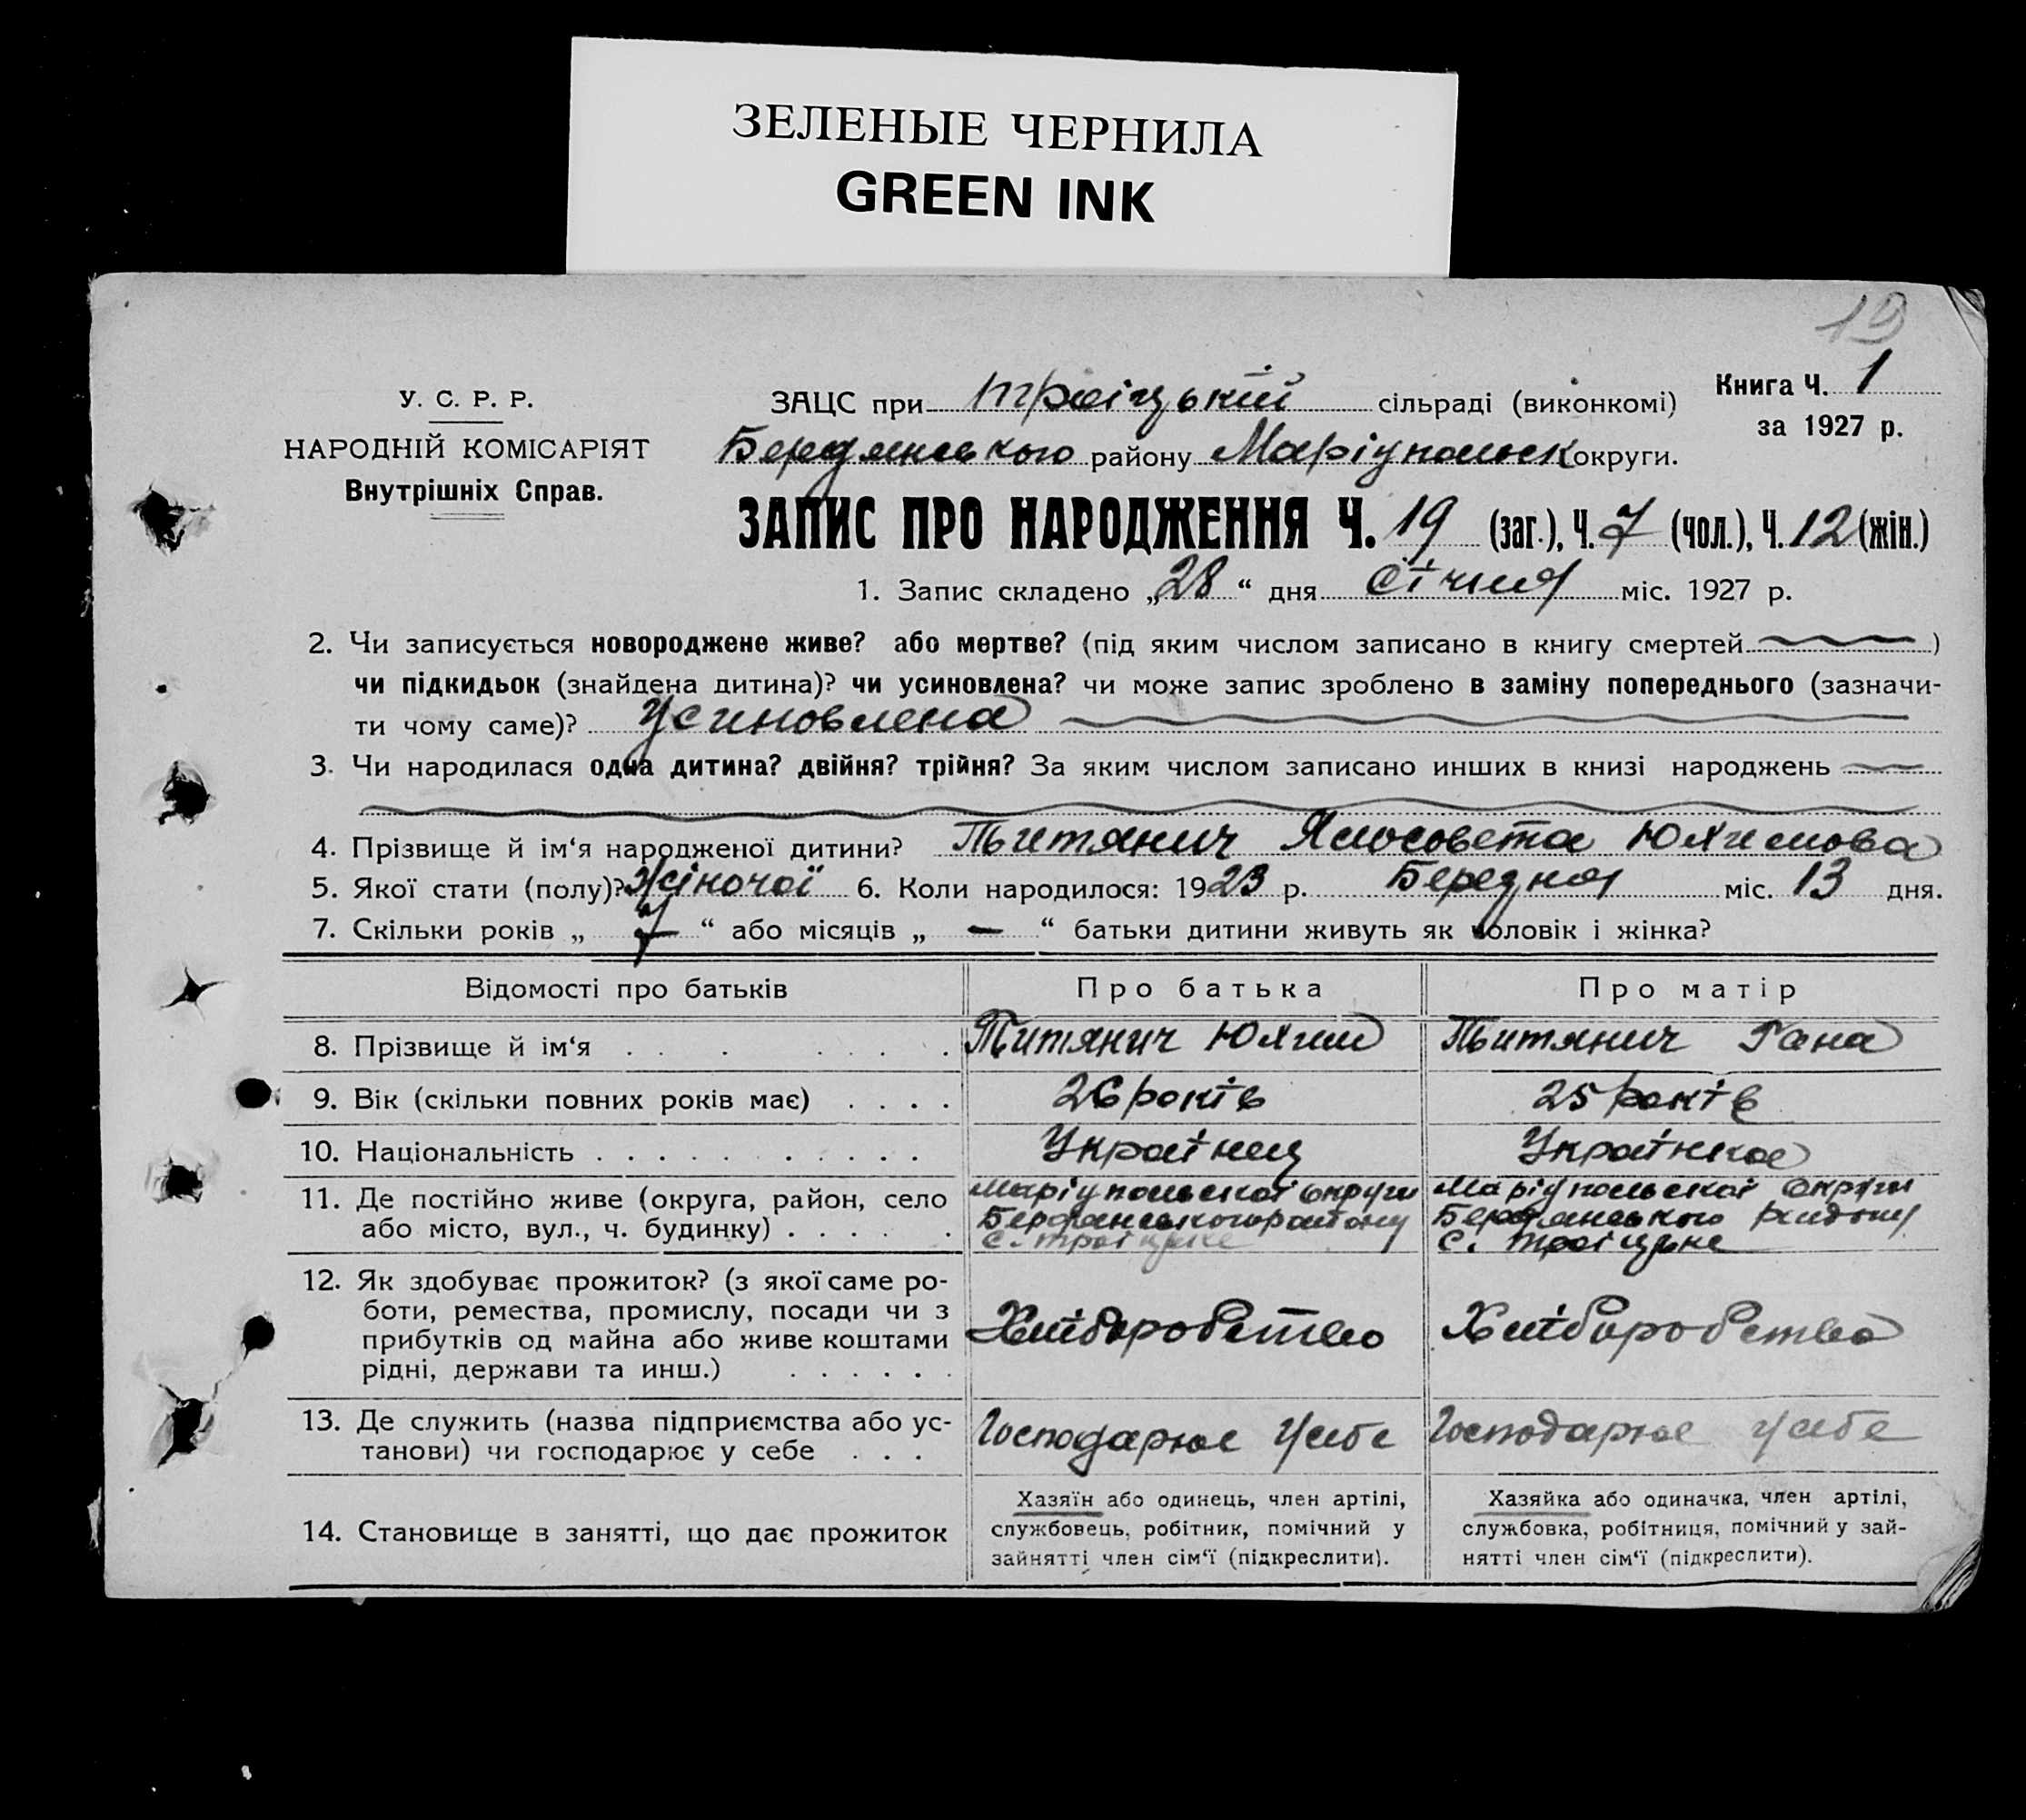 ЗЕЛЕНЫЕ ЧЕРНИЛА
GREEN INK
19
У. С. Р. Р.
НАРОДНІЙ КОМІСАРІЯТ
Внутрішніх Справ.
ЗАЦС при Троіцькій сільраді (виконкомі)
Книга Ч. 1
за 1927 р.
Бердянського району Маріупольск округи.
ЗАПИС ПРО НАРОДЖЕННЯ Ч. 19 (заг.), Ч. 7 (чол.), Ч. 12 (жін.)
1. Запис складено „28“ дня Січня міс. 1927 р.
2. Чи записується новороджене живе? або мертве? (під яким числом записано в книгу смертей )
чи підкидьок (знайдена дитина)? чи усиновлена? чи може запис зроблено в заміну попереднього (зазначи-
ти чому саме)? Усиновлена
3. Чи народилася одна дитина? двійня? трійня? За яким числом записано инших в книзі народжень
4. Прізвище й ім‘я народженої дитини? Титянич Ялосовета Юхимова
5. Якої стати (полу)? Жіночої 6. Коли народилося: 1923 р. Березня міс. 13 дня.
7. Скільки років „ 7 “ або місяців „ — “ батьки дитини живуть як чоловік і жінка?
Відомості про батьків Про батька Про матір
8. Прізвище й ім‘я . . . . . . . Титянич Юхим Титянич Гана
9. Вік (скільки повних років має) . . . . 26 років 25 років
10. Національність . . . . . . . . . . . Украінец Украінкае
11. Де постійно живе (округа, район, село Маріупольскоі округи Маріупольскоі округи
або місто, вул., ч. будинку) . . . . . Бердянського району Бердянського району
с. Троіцьке с. Троіцьке
12. Як здобуває прожиток? (з якої саме ро-
боти, ремества, промислу, посади чи з
прибутків од майна або живе коштами Хліборобство Хліборобство
рідні, держави та инш.) . . . . . .
13. Де служить (назва підприємства або ус- Господарює у себе Господарює у себе
танови) чи господарює у себе . . .
Хазяїн або одинець, член артілі, Хазяйка або одиначка, член артілі,
14. Становище в занятті, що дає прожиток службовець, робітник, помічний у службовка, робітниця, помічний у зай-
зайнятті член сім‘ї (підкреслити). нятті член сім‘ї (підкреслити).